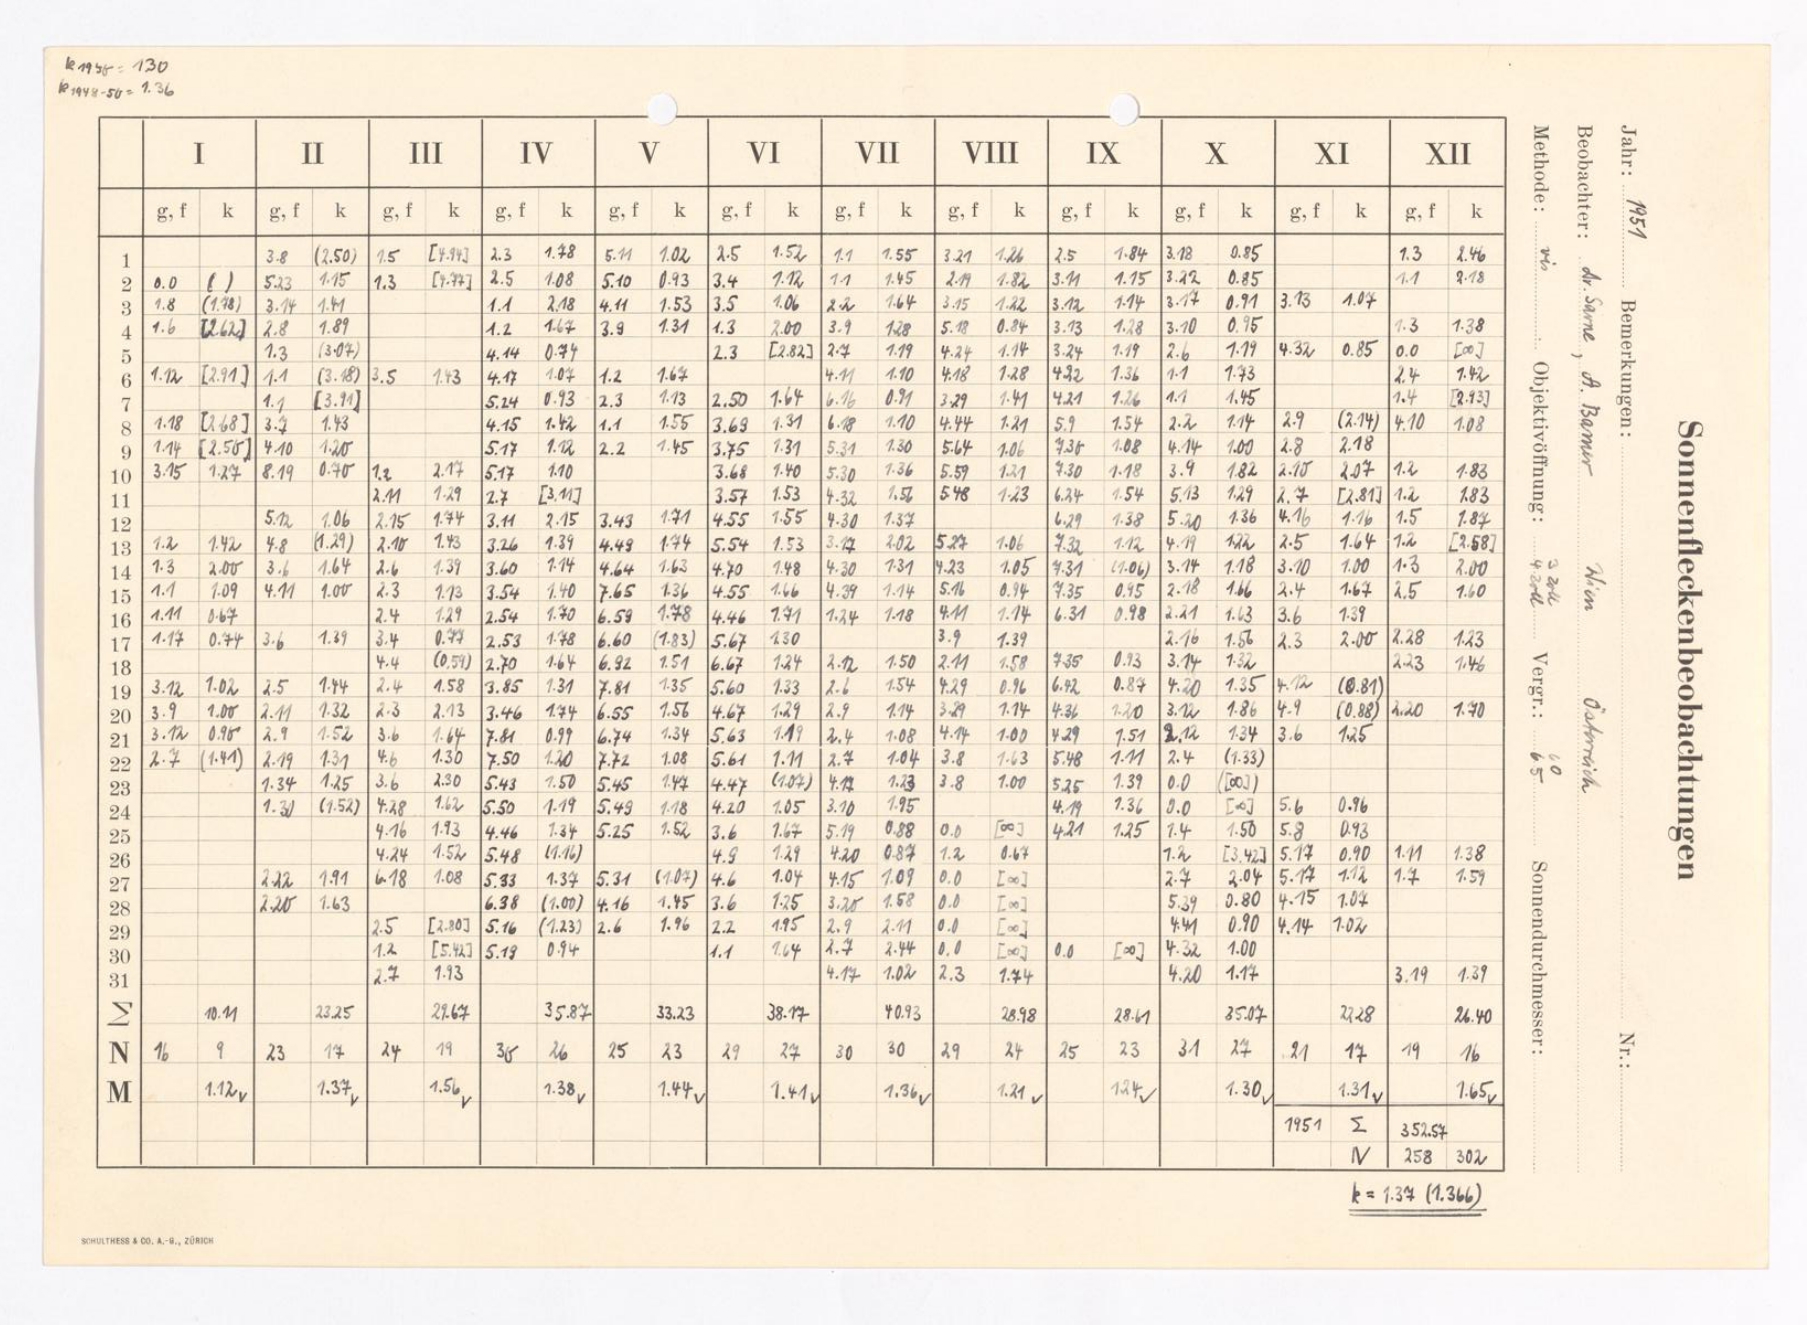 k 1948-50 = 1.36
I II III IV V VI VII VIII IX X XI XII
g, f k g, f k g, f k g, f k g, f k g, f k g, f k g, f k g, f k g, f k g, f k g, f k
1 3.8 (2.50) 1.5 [4.94] 2.3 1.78 5.11 1.02 2.5 1.52 1.1 1.55 3.21 1.26 2.5 1.84 3.18 0.85 1.3 2.46
2 0.0 ( ) 5.23 1.15 1.3 [4.77] 2.5 1.08 5.10 0.93 3.4 1.12 1.1 1.45 2.19 1.82 3.11 1.15 3.22 0.85 1.1 2.18
3 1.8 (1.78) 3.14 1.41 1.1 2.18 4.11 1.53 3.5 1.06 2.2 1.64 3.15 1.22 3.12 1.14 3.17 0.91 3.13 1.07
4 1.6 [2.62] 2.8 1.89 1.2 1.67 3.9 1.31 1.3 2.00 3.9 1.28 5.18 0.84 3.13 1.28 3.10 0.95 1.3 1.38
5 1.3 (3.07) 4.14 0.74 2.3 [2.82] 2.7 1.19 4.24 1.14 3.24 1.19 2.6 1.19 4.32 0.85 0.0 [∞]
6 1.12 [2.91] 1.1 (3.18) 3.5 1.43 4.17 1.07 1.2 1.67 4.11 1.10 4.18 1.28 4.22 1.36 1.1 1.73 2.4 1.42
7 1.1 [3.91] 5.24 0.93 2.3 1.13 2.50 1.64 6.16 0.91 3.29 1.41 4.21 1.26 1.1 1.45 1.4 [2.93]
8 1.18 [2.68] 3.7 1.43 4.15 1.42 1.1 1.55 3.69 1.31 6.18 1.10 4.44 1.21 5.9 1.54 2.2 1.14 2.9 (2.14) 4.10 1.08
9 1.14 [2.50] 4.10 1.20 5.17 1.12 2.2 1.45 3.75 1.31 5.31 1.30 5.64 1.06 7.30 1.08 4.14 1.00 2.8 2.18
10 3.15 1.27 8.19 0.70 1.2 2.17 5.17 1.10 3.68 1.40 5.30 1.36 5.59 1.21 7.30 1.18 3.9 1.82 2.10 2.07 1.2 1.83
11 2.11 1.29 2.7 [3.11] 3.57 1.53 4.32 1.56 5.48 1.23 6.24 1.54 5.13 1.29 2.7 [2.81] 1.2 1.83
12 5.12 1.06 2.15 1.74 3.11 2.15 3.43 1.71 4.55 1.55 4.30 1.37 6.29 1.38 5.20 1.36 4.16 1.16 1.5 1.87
13 1.2 1.42 4.8 (1.29) 2.10 1.43 3.26 1.39 4.49 1.74 5.54 1.53 3.17 2.02 5.27 1.06 7.32 1.12 4.19 1.22 2.5 1.64 1.2 [2.58]
14 1.3 2.00 3.6 1.64 2.6 1.39 3.60 1.14 4.64 1.63 4.70 1.48 4.30 1.31 4.23 1.05 7.31 (1.06) 3.14 1.18 3.10 1.00 1.3 2.00
15 1.1 1.09 4.11 1.00 2.3 1.13 3.54 1.40 7.65 1.36 4.55 1.66 4.39 1.14 5.16 0.94 7.35 0.95 2.18 1.66 2.4 1.67 2.5 1.60
16 1.11 0.67 2.4 1.29 2.54 1.70 6.59 1.78 4.46 1.71 1.24 1.18 4.11 1.14 6.31 0.98 2.21 1.63 3.6 1.39
17 1.17 0.74 3.6 1.39 3.4 0.77 2.53 1.78 6.60 (1.83) 5.67 1.30 3.9 1.39 2.16 1.56 2.3 2.00 2.28 1.23
18 4.4 (0.59) 2.70 1.64 6.92 1.51 6.67 1.24 2.12 1.50 2.11 1.58 7.35 0.93 3.14 1.32 2.23 1.46
19 3.12 1.02 2.5 1.44 2.4 1.58 3.85 1.31 7.81 1.35 5.60 1.33 2.6 1.54 4.29 0.96 6.42 0.87 4.20 1.35 4.12 (0.81)
20 3.9 1.00 2.11 1.32 2.3 2.13 3.46 1.74 6.55 1.56 4.67 1.29 2.9 1.14 3.29 1.14 4.36 1.20 3.12 1.86 4.9 (0.88) 2.20 1.70
21 3.12 0.90 2.9 1.52 3.6 1.64 7.81 0.99 6.74 1.34 5.63 1.19 2.4 1.08 4.14 1.00 4.29 1.51 2.12 1.34 3.6 1.25
22 2.7 (1.41) 2.19 1.31 4.6 1.30 7.50 1.20 7.72 1.08 5.61 1.11 2.7 1.04 3.8 1.63 5.48 1.11 2.4 (1.33)
23 1.34 1.25 3.6 2.30 5.43 1.50 5.45 1.47 4.47 (1.07) 4.17 1.23 3.8 1.00 5.25 1.39 0.0 ([∞])
24 1.30 (1.52) 4.28 1.62 5.50 1.19 5.49 1.18 4.20 1.05 3.10 1.95 4.19 1.36 0.0 [∞] 5.6 0.96
25 4.16 1.93 4.46 1.34 5.25 1.52 3.6 1.67 5.19 0.88 0.0 [∞] 4.21 1.25 1.4 1.50 5.8 0.93
26 4.24 1.52 5.48 (1.16) 4.9 1.29 4.20 0.87 1.2 0.67 1.2 [3.42] 5.17 0.90 1.11 1.38
27 2.22 1.91 6.18 1.08 5.33 1.37 5.31 (1.07) 4.6 1.04 4.15 1.09 0.0 [∞] 2.7 2.04 5.17 1.12 1.7 1.59
28 2.20 1.63 6.38 (1.00) 4.16 1.45 3.6 1.25 3.20 1.58 0.0 [∞] 5.39 0.80 4.15 1.07
29 2.5 [2.80] 5.16 (1.23) 2.6 1.96 2.2 1.95 2.9 2.11 0.0 [∞] 4.41 0.90 4.14 1.02
30 1.2 [5.42] 5.19 0.94 1.1 1.64 2.7 2.44 0.0 [∞] 0.0 [∞] 4.32 1.00
31 2.7 1.93 4.17 1.02 2.3 1.74 4.20 1.17 3.19 1.39
Σ 10.11 23.25 29.67 35.87 33.23 38.17 40.93 28.98 28.61 35.07 22.28 26.40
N 16 9 23 17 24 19 30 26 25 23 29 27 30 30 29 24 25 23 31 27 21 17 19 16
M 1.12 1.37 1.56 1.38 1.44 1.41 1.36 1.21 1.24 1.30 1.31 1.65
1951 Σ 352.57
N 258 302
k = 1.37 (1.366)
SCHULTHESS & CO. A.-G., ZÜRICH
Sonnenfleckenbeobachtungen
Jahr: 1951 Bemerkungen: Nr.:
Beobachter: Dr. , A. Wien Österreich
Methode: vis Objektivöffnung: 3 Zoll 4 Zoll Vergr.: 60 65 Sonnendurchmesser: